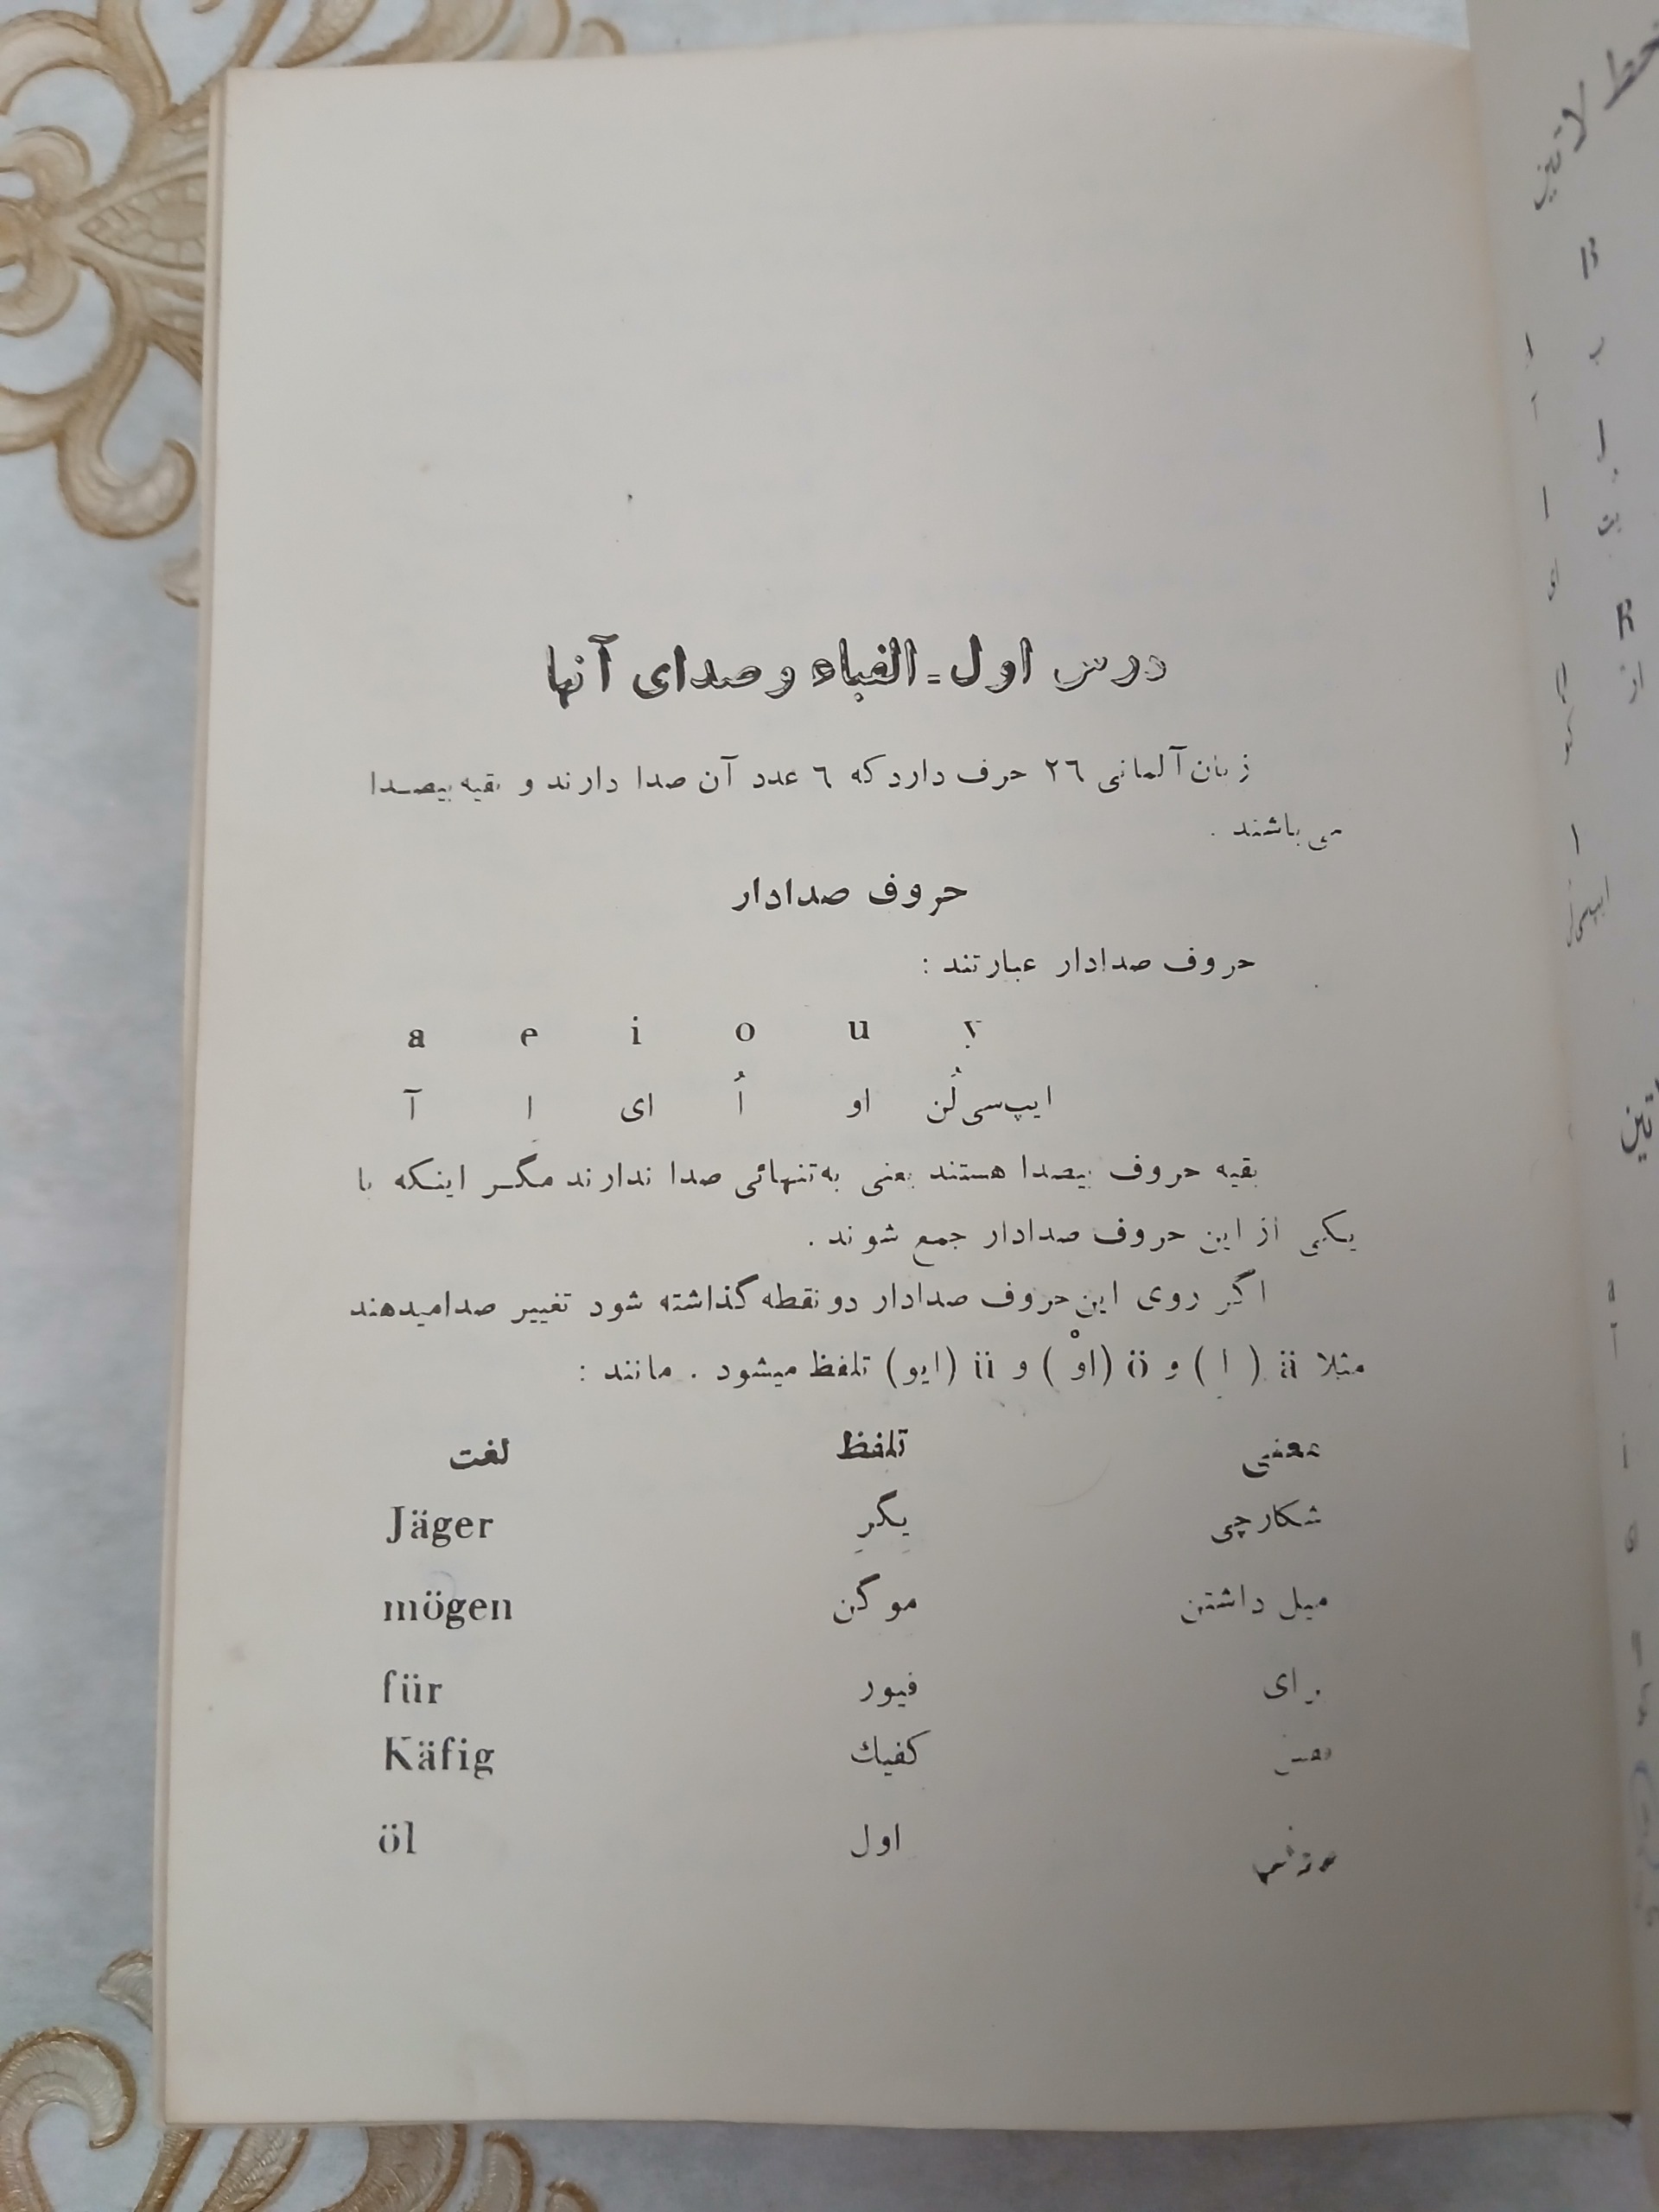 درس اول = الفباء و صدای آنها
زبان آلمانی ٢٦ حرف دارد که ٦ عدد آن صدا دارند و بقیه بیصدا
می باشند .
حروف صدادار
حروف صدادار عبارتند :
a e i o u y
آ اِ ای اُ او ایپ‌سی‌لُن
بقیه حروف بیصدا هستند یعنی به‌تنهائی صدا ندارند مگر اینکه با
یکی از این حروف صدادار جمع شوند .
اگر روی این حروف صدادار دو نقطه گذاشته شود تغییر صدا میدهند
مثلا ä ( اِ ) و ö (اوْ ) و ü (ایو) تلفظ میشود . مانند :
لغت تلفظ معنی
Jäger یِگرِ شکارچی
mögen موگن میل داشتن
für فیور برای
Käfig کفیك
öl اول
خط لاتین
B
ب
R
ار